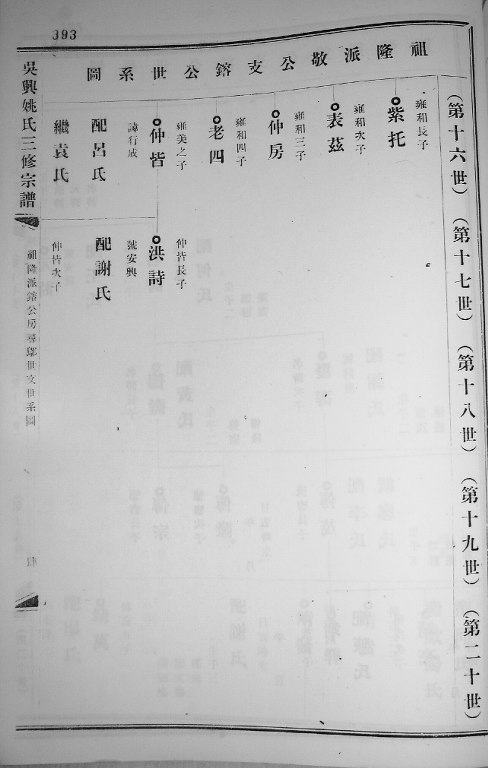 393
祖隆派敬公支鎔公世系圖
(第十六世)
(第十七世)
(第十八世)
(第十九世)
(第二十世)
雍和長子
紫托
雍和次子
表茲
雍和三子
仲房
雍和四子
老四
雍美之子
仲皆
諱行成
配呂氏
繼袁氏
仲皆長子
洪詩
號安興
配謝氏
仲皆次子
吳興姚氏三修宗譜
祖隆派鎔公房尋鄔世文世系圖